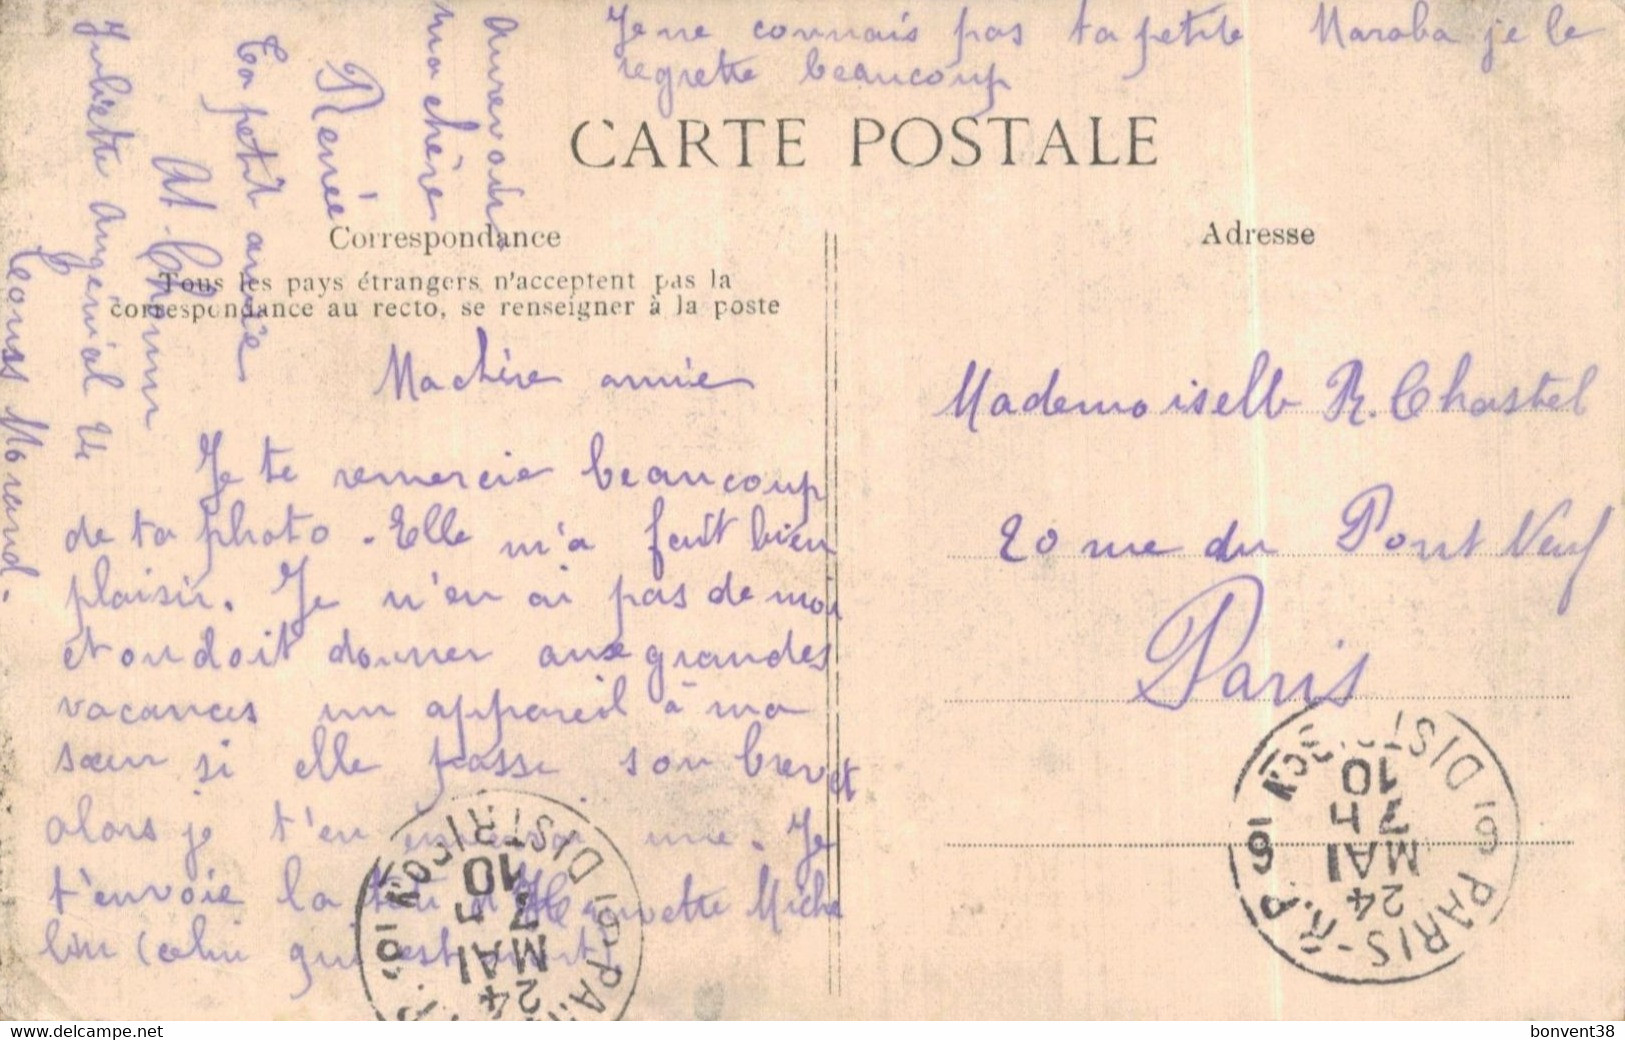 Je ne connais pas ta petite Maraba je le
regrette beaucoup
CARTE POSTALE
Correspondance
Tous les pays étrangers n'acceptent pas la
correspondance au recto, se renseigner à la poste
Ma chère amie
Je te remercie beaucoup
de ta photo. Elle m'a fait bien
plaisir. Je n'en ai pas de moi
et on doit donner aux grandes
vacances un appareil à ma
sœur si elle passe son brevet
alors je t'en une. Je
t'envoie la Miche
lin (celui qui est
Aurevoir
ma chère
Renée
Ta petite amie
M. Thomm
Juliette Angénial
Léons Morand.
Adresse
Mademoiselle R. Chastel
20 rue du Pont Neuf
Paris
PARIS-R.P
24
MAI
7H
10
DIST
24
MAI
7H
10
DISTRI
bonvent38